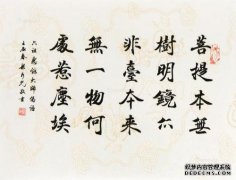 菩提本無
樹明鏡亦
非臺本來
無一物何
處惹塵埃
六祖慧能大師偈語
春
敬書
织梦内容管理系统
DEDECMS.COM